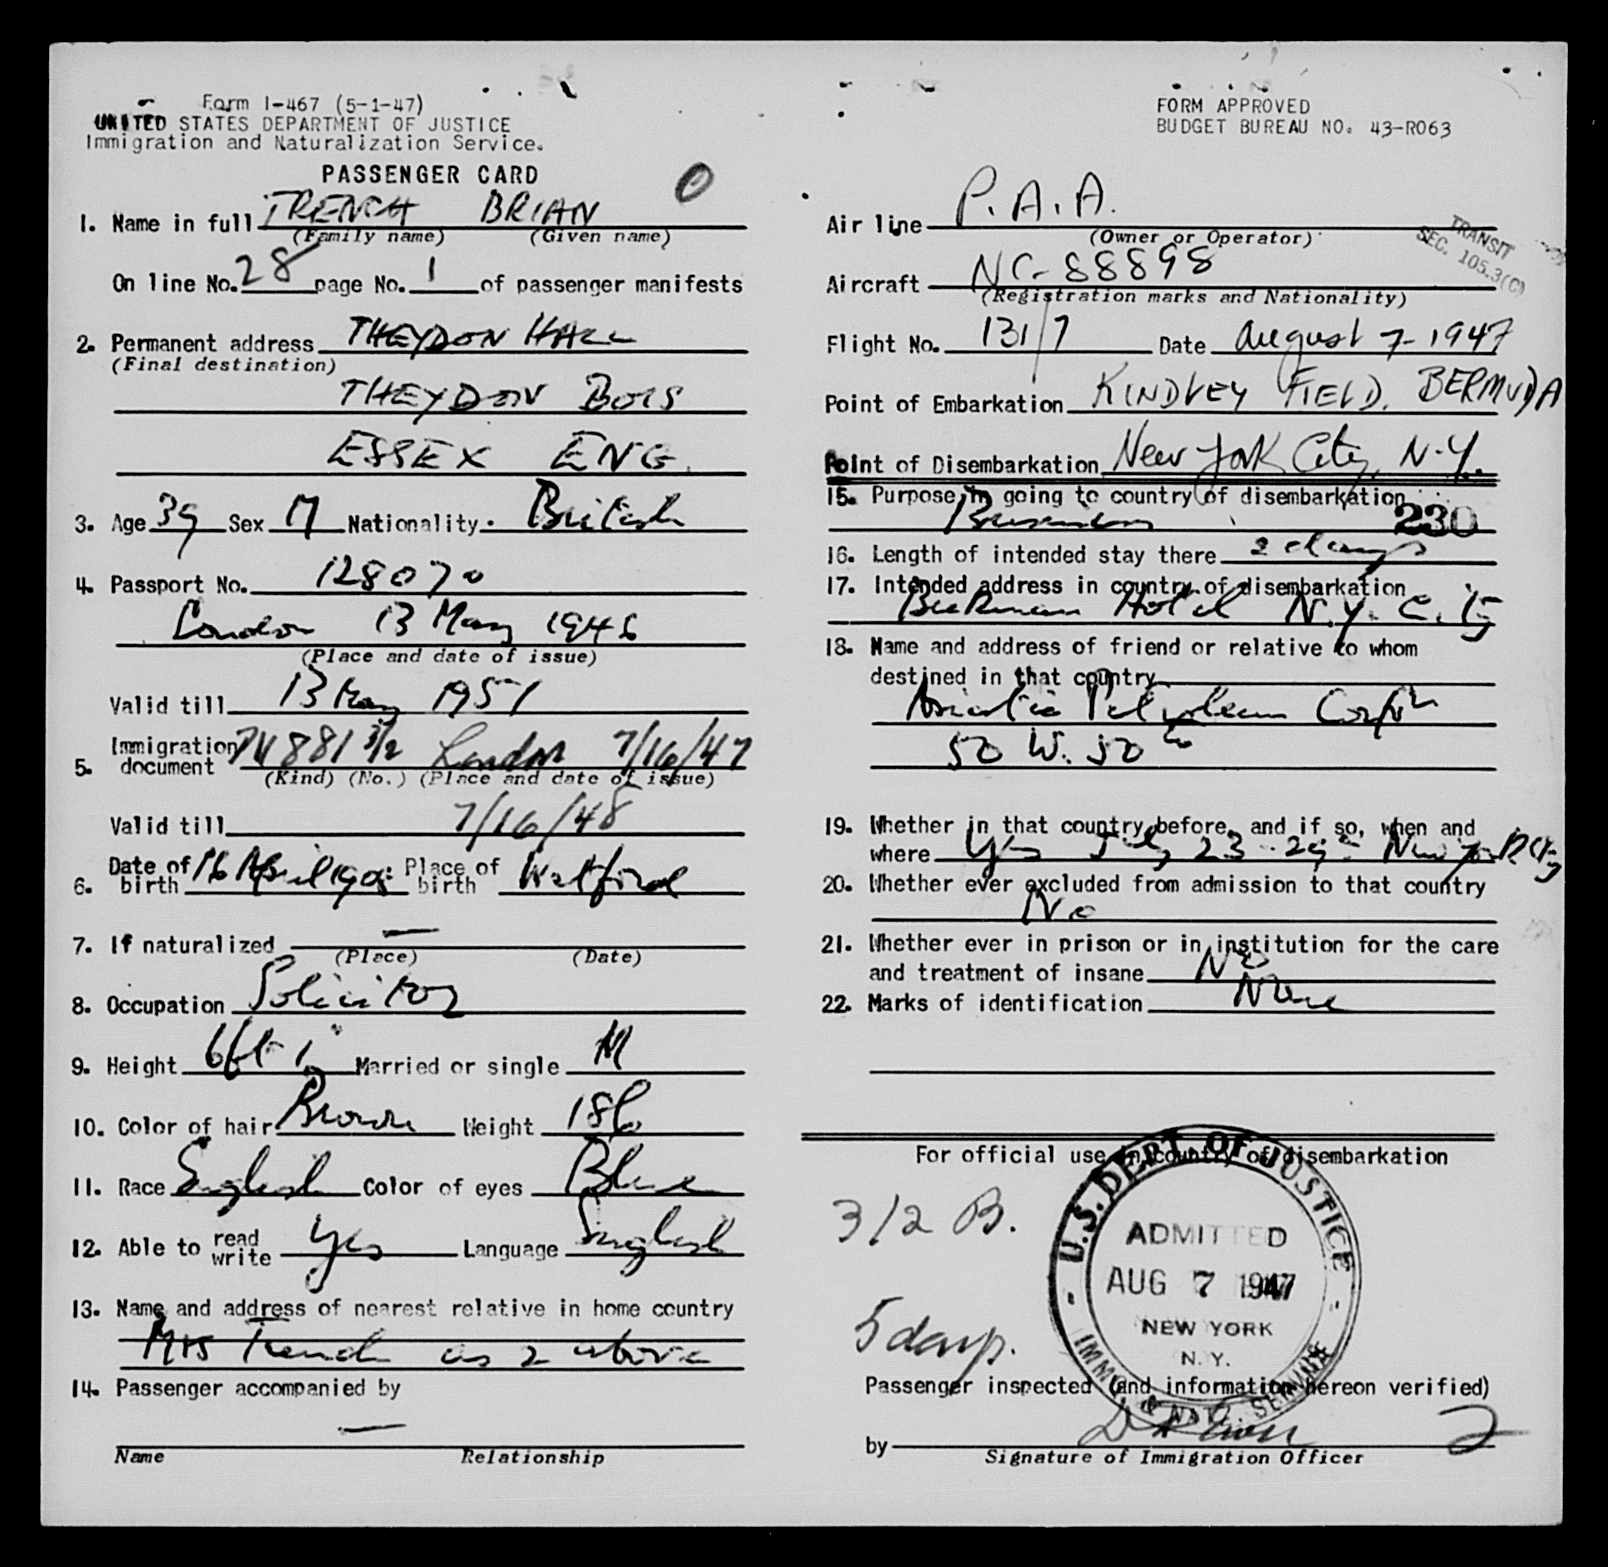 Form I-467 (5-1-47)
UNITED STATES DEPARTMENT OF JUSTICE
Immigration and Naturalization Service.
PASSENGER CARD
1. Name in full TRENCH BRIAN
(Family name) (Given name)
On line No. 28 page No. 1 of passenger manifests
2. Permanent address THEYDON HALL
(Final destination)
THEYDON BOIS
ESSEX ENG.
3. Age 39 Sex M Nationality. British
4. Passport No. 128070
London 13 May 1946
(Place and date of issue)
Valid till 13 May 1951
5. Immigration document PV 881 3/2 London 7/16/47
(Kind) (No.) (Place and date of issue)
Valid till 7/16/48
6. Date of birth 16 April 1908 Place of birth Watford
7. If naturalized —
(Place) (Date)
8. Occupation Solicitor
9. Height 6ft 1" Married or single M
10. Color of hair Brown Weight 186
11. Race English Color of eyes Blue
12. Able to read write Yes Language English
13. Name and address of nearest relative in home country
Mrs Trench as 2 above
14. Passenger accompanied by
—
Name Relationship
FORM APPROVED
BUDGET BUREAU NO. 43-R063
TRANSIT
SEC. 105.3(C)
Air line P.A.A.
(Owner or Operator)
Aircraft NC-88898
(Registration marks and Nationality)
Flight No. 131/7 Date August 7-1947
Point of Embarkation KINDLEY FIELD, BERMUDA
Point of Disembarkation New York City, N.Y.
15. Purpose in going to country of disembarkation
Business 230
16. Length of intended stay there 2 days
17. Intended address in country of disembarkation
Beekman Hotel N.Y. City
18. Name and address of friend or relative to whom
destined in that country
Asiatic Petroleum Corpn
50 W. 50th
19. Whether in that country before, and if so, when and
where Yes July 23-29th New York City
20. Whether ever excluded from admission to that country
No
21. Whether ever in prison or in institution for the care
and treatment of insane No
22. Marks of identification None
For official use in country of disembarkation
3/2 B.
5 days.
U.S. DEPT. OF JUSTICE
ADMITTED
AUG 7 1947
NEW YORK
N.Y.
IMMG. & NATZ. SERVICE
Passenger inspected (and information hereon verified)
by 2
Signature of Immigration Officer